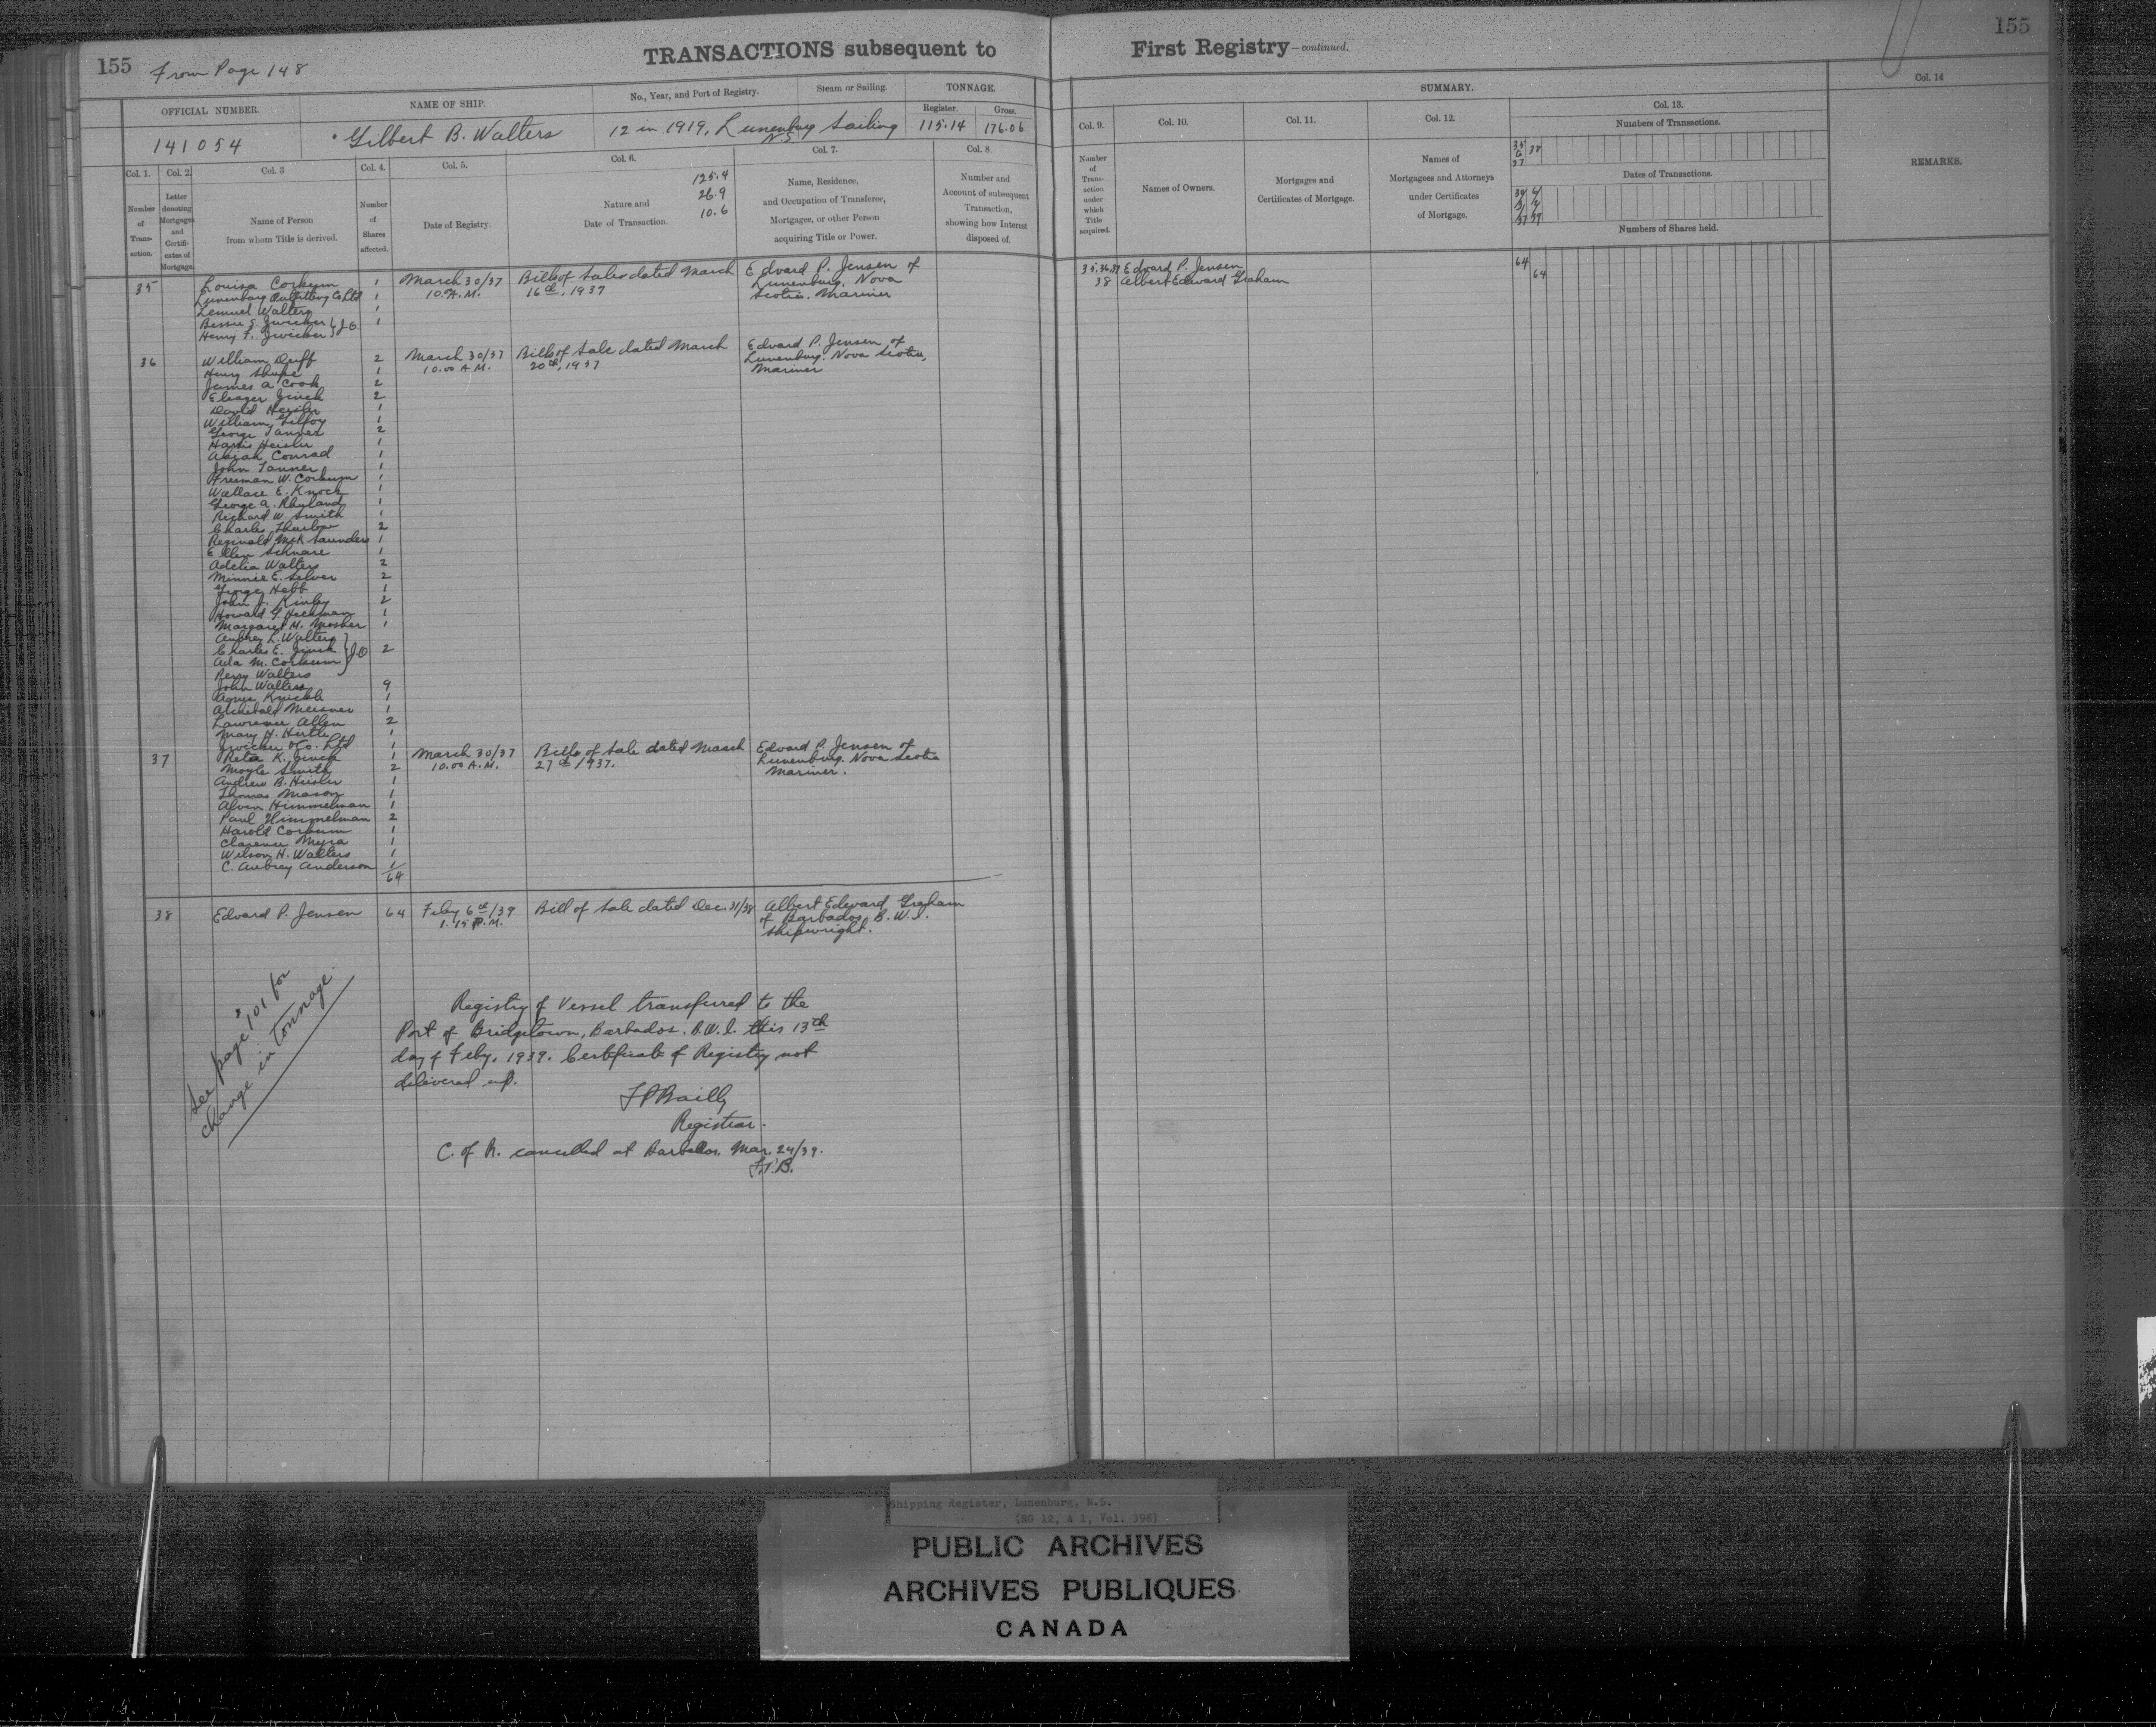 155
From Page 148
TRANSACTIONS subsequent to First Registry—continued.
155
OFFICIAL NUMBER.
NAME OF SHIP.
No., Year, and Port of Registry.
Steam or Sailing.
TONNAGE.
Register.
Gross.
141054
Gilbert B. Walters
12 in 1919, Lunenburg N.S.
Sailing
115.14
176.06
Col. 1.
Number of Transaction.
Col. 2.
Letter denoting Mortgages and Certificates of Mortgage.
Col. 3
Name of Person from whom Title is derived.
Col. 4.
Number of Shares affected.
Col. 5.
Date of Registry.
Col. 6.
Nature and Date of Transaction.
125.4
26.9
10.6
Col. 7.
Name, Residence, and Occupation of Transferee, Mortgagee, or other Person acquiring Title or Power.
Col. 8.
Number and Account of subsequent Transaction, showing how Interest disposed of.
SUMMARY.
Col. 9.
Number of Transaction under which Title acquired.
Col. 10.
Names of Owners.
Col. 11.
Mortgages and Certificates of Mortgage.
Col. 12.
Names of Mortgagees and Attorneys under Certificates of Mortgage.
Col. 13.
Numbers of Transactions.
38
Dates of Transactions.
Numbers of Shares held.
Col. 14
REMARKS.
35 Louisa Corkum 1 March 30/37 Bills of Sale dated March Edvard P. Jensen of
Lunenburg Outfitting Co Ltd 1 10. A.M. 16th, 1937 Lunenburg, Nova
Lemuel Walters 1 Scotia. Mariner
Bessie S. Zwicker } J.O 1
Henry F. Zwicker
36 William Duff 2 March 30/37 Bills of Sale dated March Edvard P. Jensen of
Henry Shupe 1 10.00 A.M. 20th, 1937 Lunenburg. Nova Scotia,
James A Cook 2 Mariner
Eleazer Zinck 2
David Heisler 1
William Gilfoy 1
George Tanner 2
Harris Heisler 1
Conrad 1
John Tanner 1
Freeman W. Corkum 1
Wallace E. Knock 1
George A. Rhyland 1
Richard W. Smith 1
Charles Thurlow 2
Reginald McK Saunders 1
Ellen Schnare 1
Adelia Walters 2
Minnie E. Silver 2
George Hebb 1
John J. Kinley 2
Howard G. Hickman 1
Margaret M. Mosher 1
Aubrey L. Walters
Charles E. Zinck } J O 2
Ada M. Corkum
Perry Walters
John Walters 9
Agnes Knickle 1
Archibald Meisner 1
Lawrence Allen 2
Mary H. Hirtle 1
Zwicker & Co. Ltd 1
37 Reta K. Zinck 1 March 30/37 Bills of Sale dated March Edvard P. Jensen of
Moyle Smith 2 10.00 A.M. 27th 1937. Lunenburg. Nova Scotia
Andrew B. Heisler 1 Mariner.
Thomas Mason 1
Alvin Himmelman 1
Paul Himmelman 2
Harold Corkum 1
Clarence Myra 1
Wilson H. Walters 1
C. Aubrey Anderson 1
64
38 Edvard P. Jensen 64 Feby 6th/39 Bill of Sale dated Dec. 31/38 Albert Edward Graham
1.15 P.M. of Barbados, B.W.I.
Shipwright.
35,36,37 Edvard P. Jensen 64
38 Albert Edward Graham 64
See page 101 for
change in tonnage
Registry of Vessel transferred to the
Port of Bridgetown, Barbados. B.W.I. this 13th
day of Feby, 1939. Certificate of Registry not
delivered up.
Registrar.
C. of R. cancelled at Barbados. Mar. 24/39.
Shipping Register, Lunenburg, N.S.
(RG 12, A 1, Vol. 398)
PUBLIC ARCHIVES
ARCHIVES PUBLIQUES
CANADA